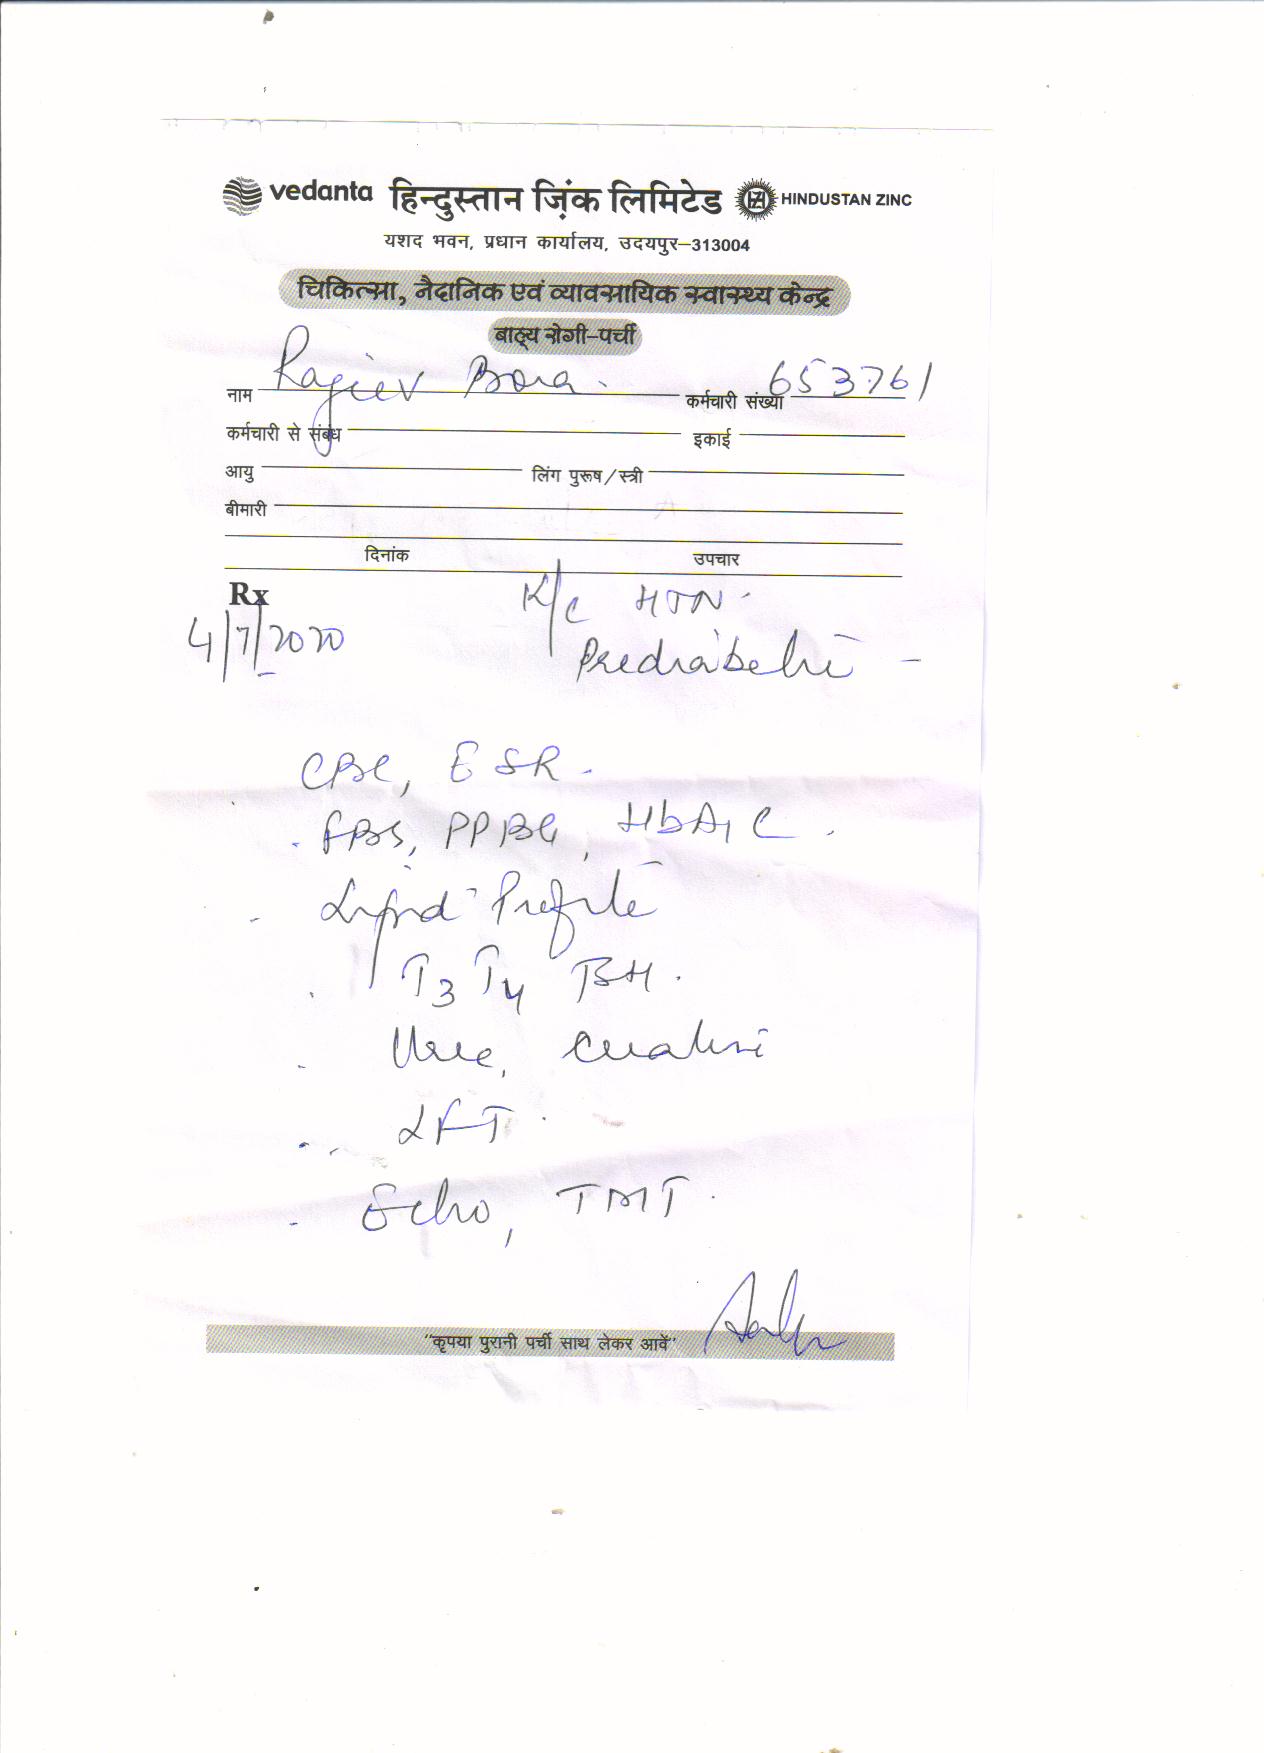 vedanta हिन्दुस्तान ज़िंक लिमिटेड HZ HINDUSTAN ZINC
यशद भवन, प्रधान कार्यालय, उदयपुर–313004
चिकित्सा, नैदानिक एवं व्यावसायिक स्वास्थ्य केन्द्र
बाह्य रोगी–पर्ची
नाम Rajeev Bora. कर्मचारी संख्या 653761
कर्मचारी से संबंध इकाई
आयु लिंग पुरूष/स्त्री
बीमारी
दिनांक उपचार
Rx K/C HTN.
4/7/2020 Prediabetic
CBC, ESR.
FBS, PPBG, HbA1C.
Lipid Profile
T3 T4 TSH.
Urea, Creatini
LFT.
Echo, TMT.
"कृपया पुरानी पर्ची साथ लेकर आवें"